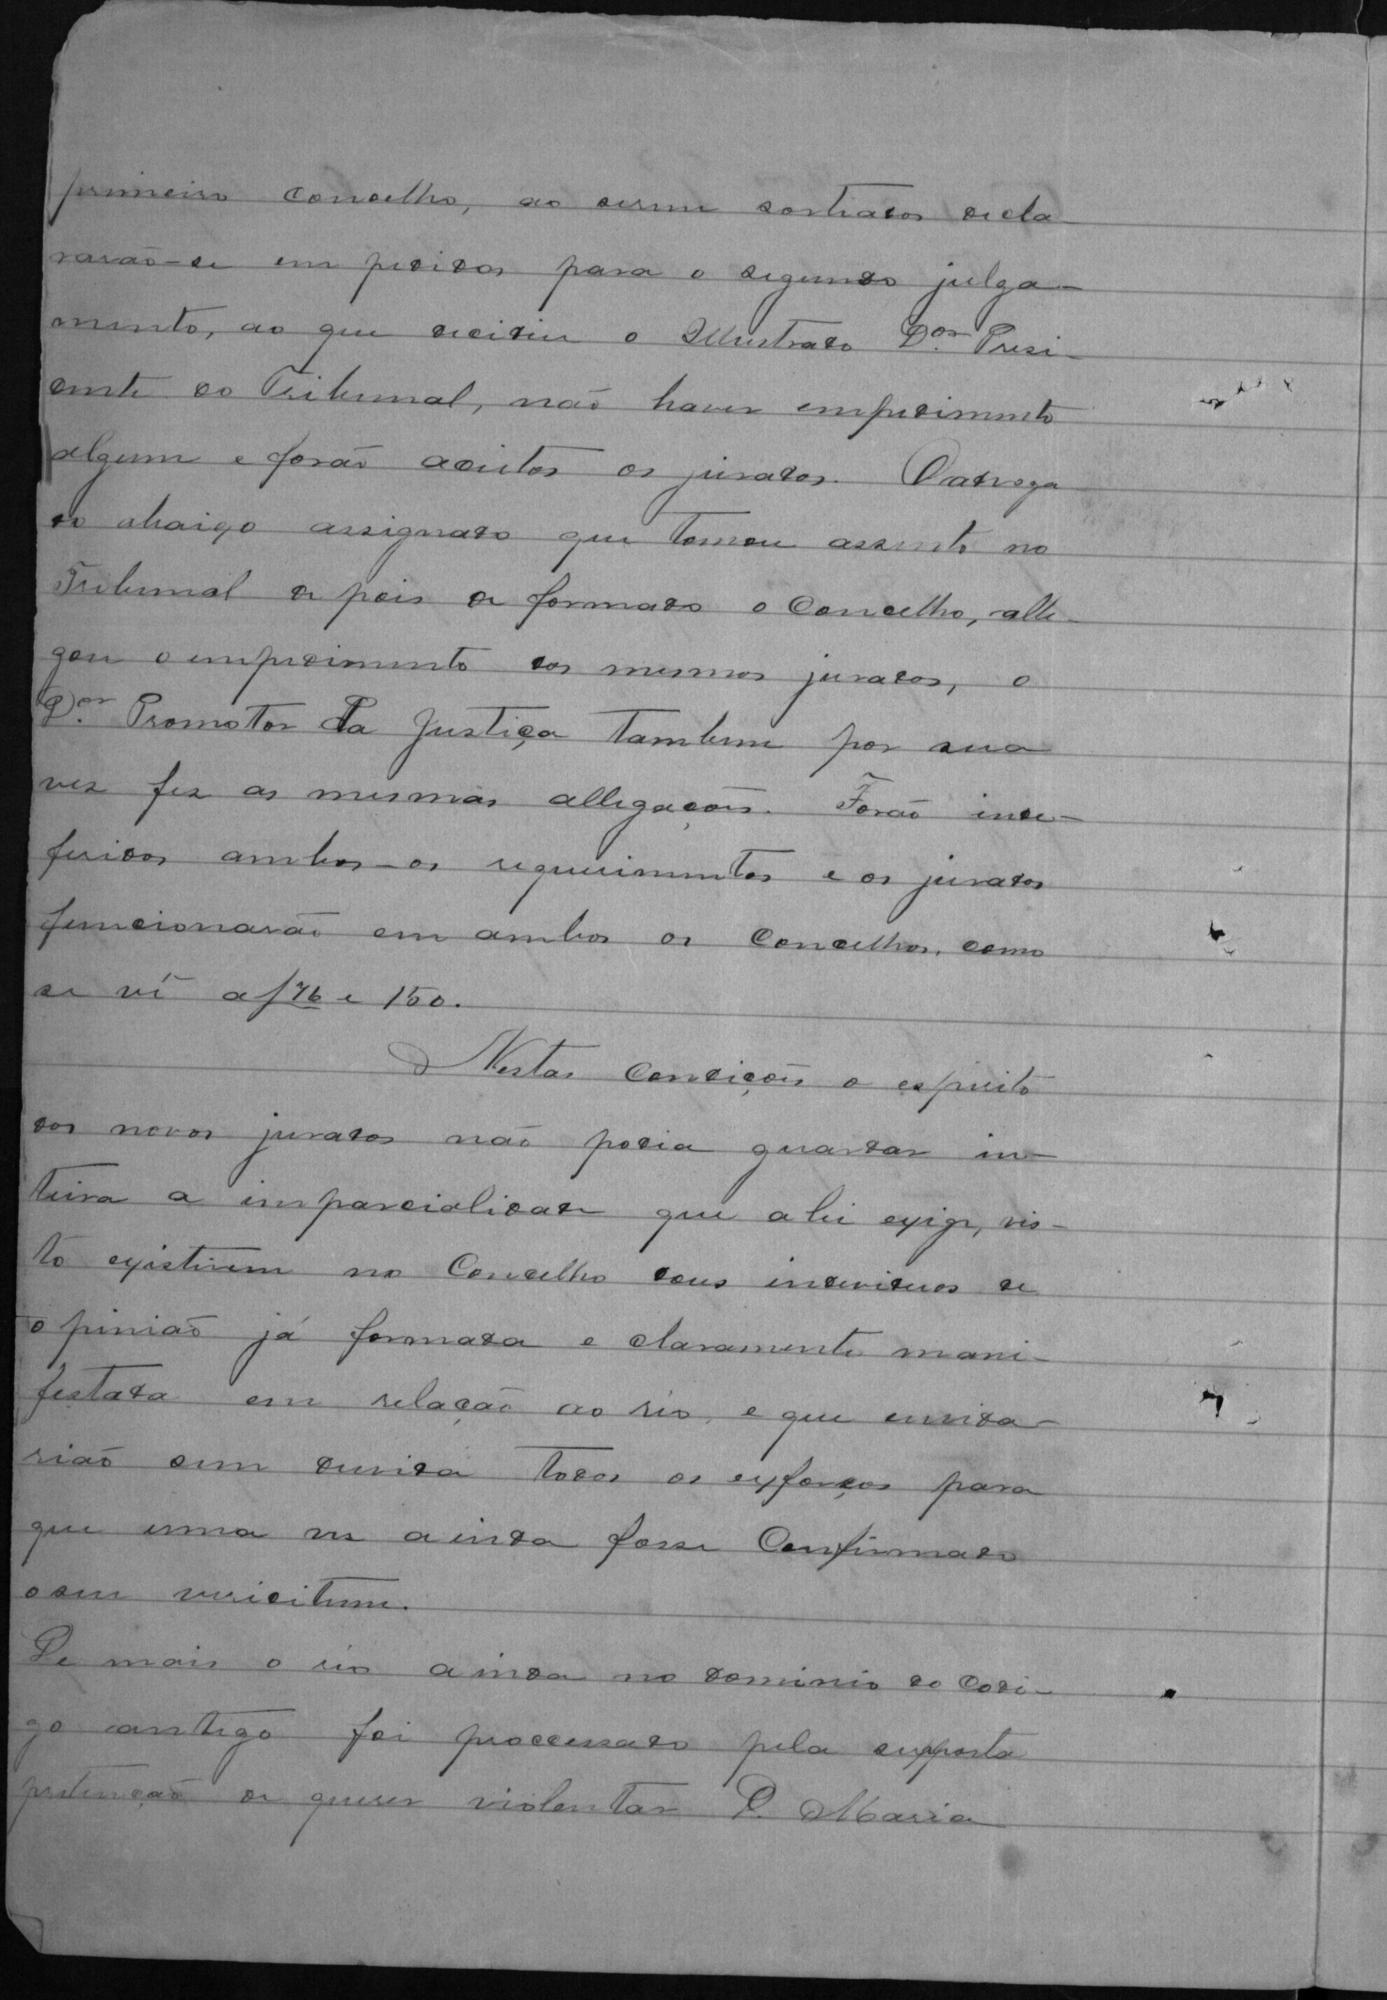 primeiro concelho, ao serem sorteados decla
rarão-se em pedidos para o segundo julga-
mento, ao que decidiu o Illustrado D.or Presi-
dente do Tribunal, não haver empedimento
algum e forão aceitos os jurados. O advoga
do abaixo assignado que tomou assento no
Tribunal de pois de formado o Concelho, alle-
gou o empedimento dos mesmos jurados, o
D.or Promotor da Justiça tambem por sua
vez fez as mesmas allegações. Forão inde-
feridos ambos-os requerimentos e os jurados
funcionarão em ambos os Concelhos, como
se vê a f 76 e 150.
Nestas condições o espirito
dos novos jurados não podia guardar in-
teira a imparcialidade que a lei exige, vis-
to existirem no Concelho dous individuos de
opinião já formada e claramente mani-
festada em relação ao réo, e que envida-
rião sem duvida todos os exforços para
que uma vez ainda fosse Confirmado
o seu veridictum.
De mais o réo ainda no dominio do Codi-
go antigo foi processado pela supposta
pretenção de querer violentar D. Maria